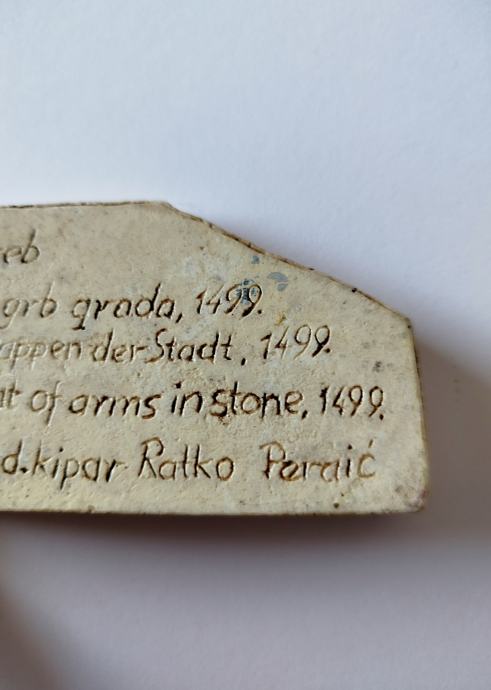 eb
grb grada, 1499.
appen der Stadt, 1499.
at of arms in stone, 1499.
d.kipar Ratko Peraić